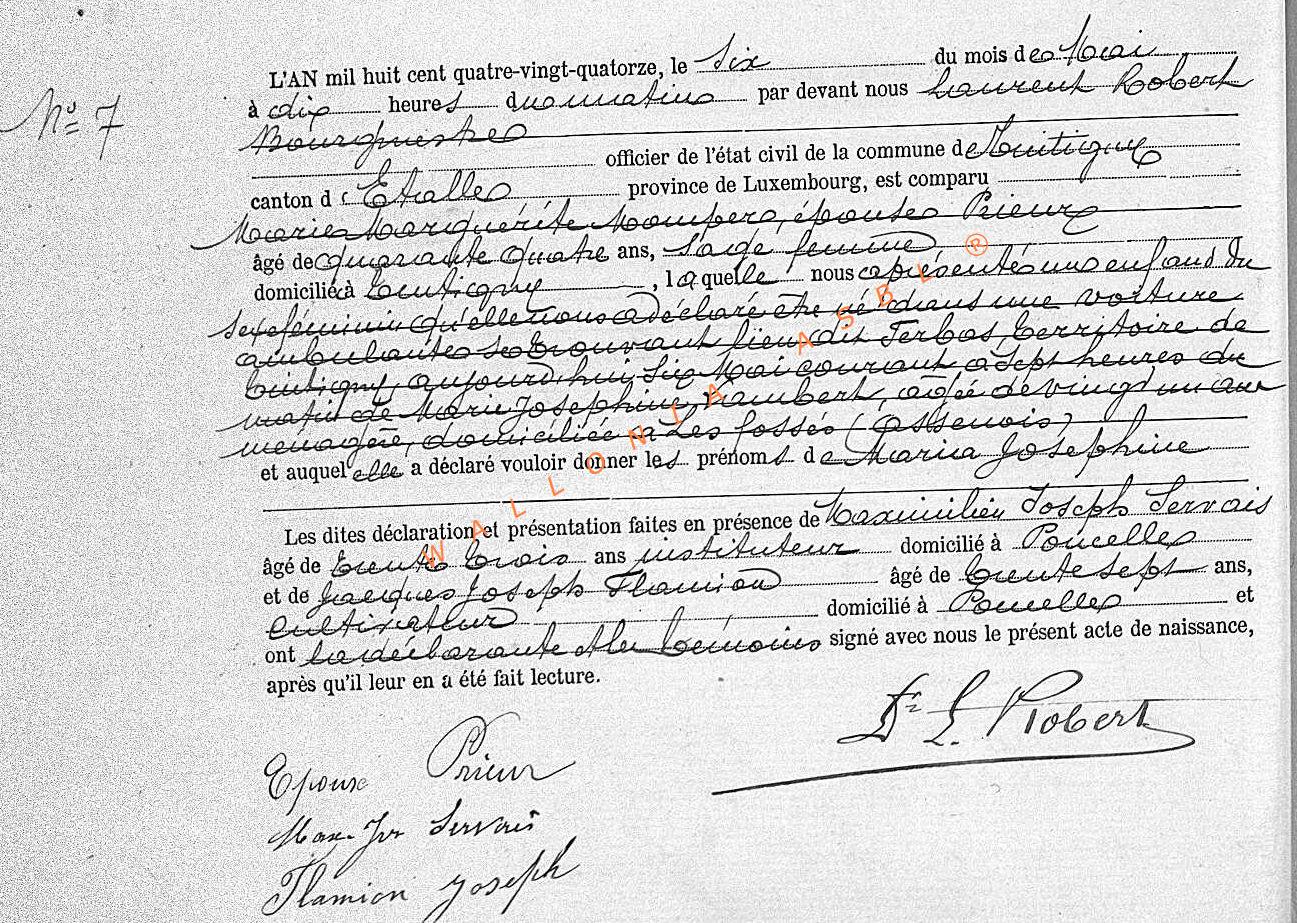 L'AN mil huit cent quatre-vingt-quatorze, le six du mois de Mai
Nº 7
à dix heures du matin par devant nous Laurent Robert
Bourgmestre
officier de l'état civil de la commune de Tintigny
canton d'Etalle province de Luxembourg, est comparu
Marie Marguérite épouse Prieur
âgé de quarante quatre ans, sage femme
domiciliée à Tintigny, laquelle nous a présenté un enfant du
sexe féminin qu'elle nous a déclaré être né dans une voiture
ambulante se trouvant lieu dit Terbas, territoire de
Tintigny, aujourd'hui six Mai courant à sept heures du
matin de Marie Josephine Lambert, agée de vingt un ans
menagère, domiciliée à Les fossés (Assenois)
et auquel elle a déclaré vouloir donner les prénoms de Maria Josephine
Les dites déclaration et présentation faites en présence de Maximilien Joseph Servais
âgé de trente trois ans instituteur domicilié à Poncelle
et de Jacques Joseph Flamion âgé de trente sept ans,
cultivateur domicilié à Poncelle et
ont la déclarante et les témoins signé avec nous le présent acte de naissance,
après qu'il leur en a été fait lecture.
Dr L. Robert
Epouse Prieur
Max. Jph Servais
Flamion Joseph
WALLONIA ASBL ®